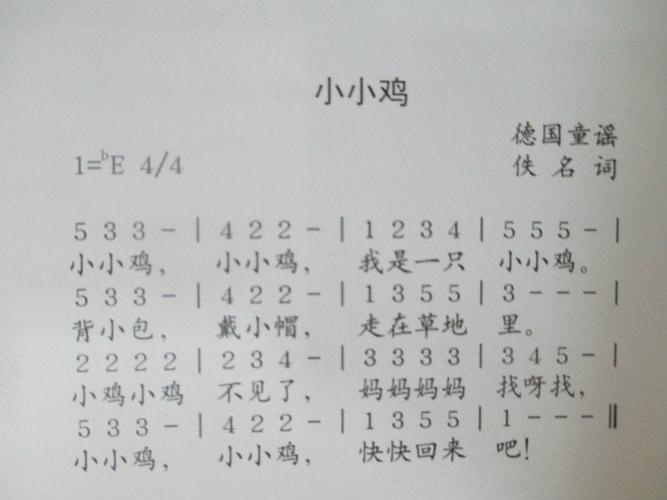 小小鸡
德国童谣
1=ᵇE 4/4 佚名词
5 3 3 - | 4 2 2 - | 1 2 3 4 | 5 5 5 - |
小小鸡， 小小鸡， 我是一只 小小鸡。
5 3 3 - | 4 2 2 - | 1 3 5 5 | 3 - - - |
背小包， 戴小帽， 走在草地 里。
2 2 2 2 | 2 3 4 - | 3 3 3 3 | 3 4 5 - |
小鸡小鸡 不见了， 妈妈妈妈 找呀找，
5 3 3 - | 4 2 2 - | 1 3 5 5 | 1 - - - ‖
小小鸡， 小小鸡， 快快回来 吧！